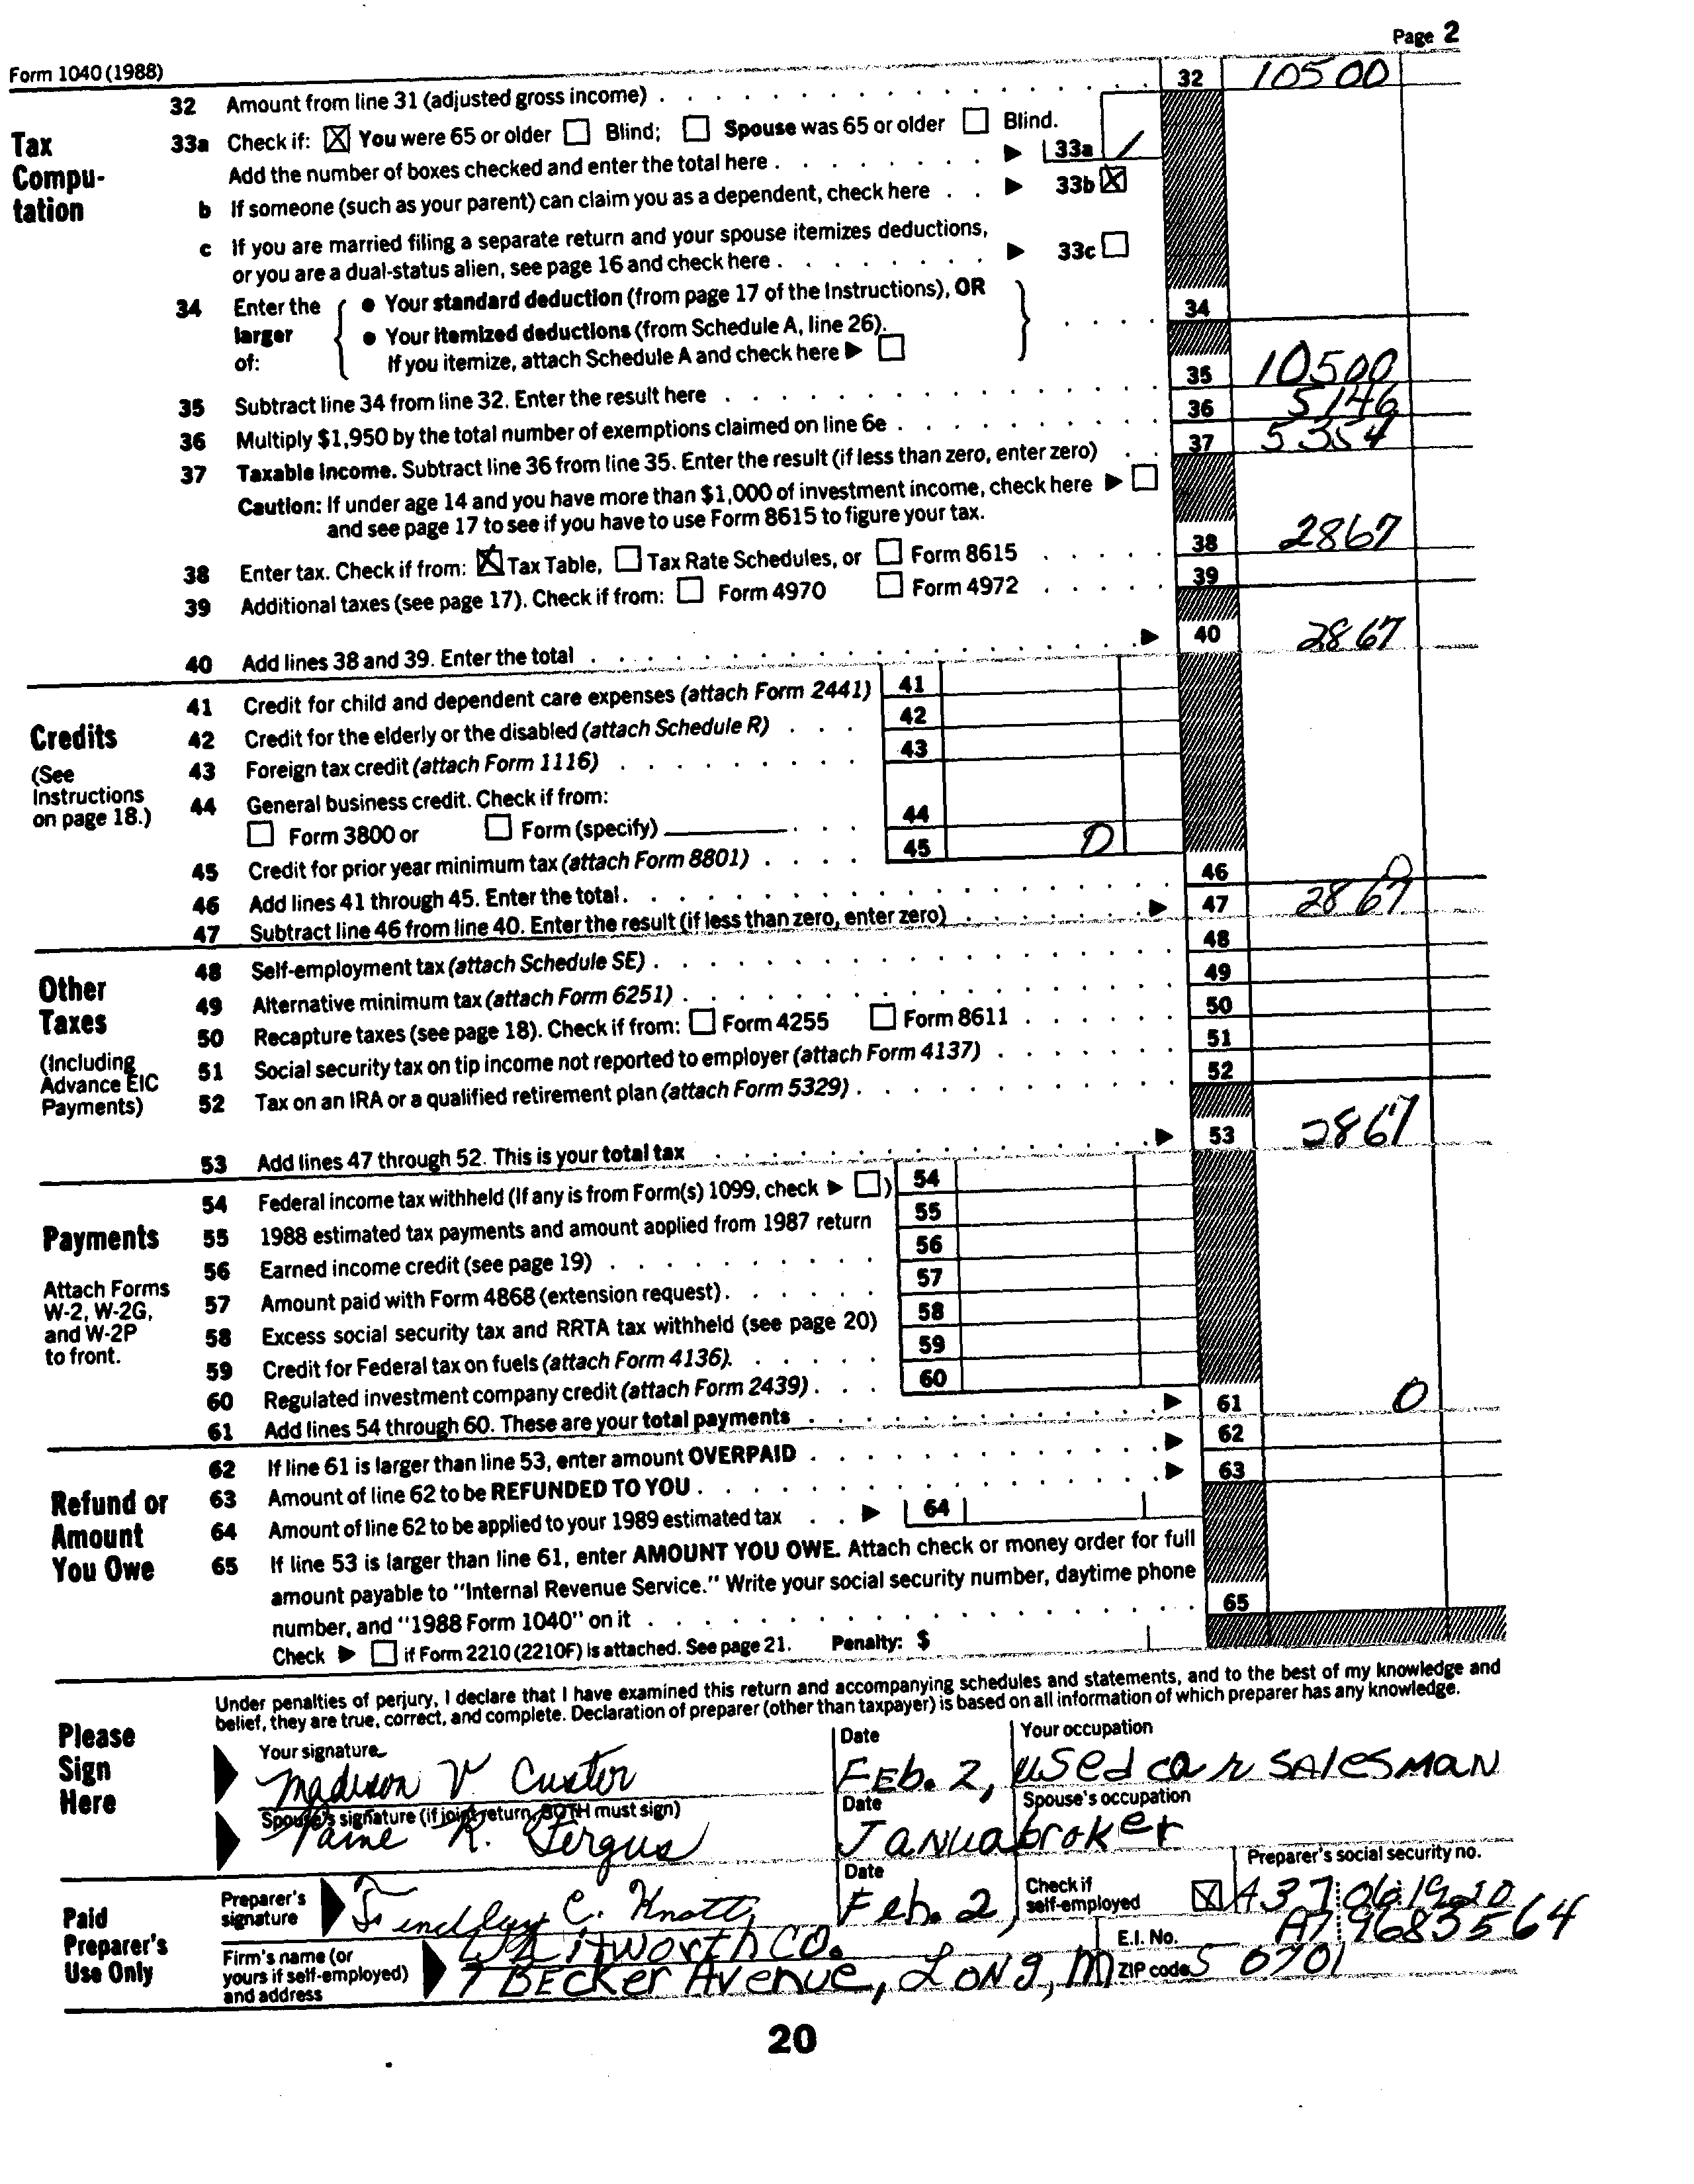 Page 2
Form 1040 (1988)
32 Amount from line 31 (adjusted gross income) 32 10500
Tax Compu-tation
33a Check if: ☒ You were 65 or older ☐ Blind; ☐ Spouse was 65 or older ☐ Blind.
Add the number of boxes checked and enter the total here ▶ 33a 1
b If someone (such as your parent) can claim you as a dependent, check here ▶ 33b ☒
c If you are married filing a separate return and your spouse itemizes deductions,
or you are a dual-status alien, see page 16 and check here ▶ 33c ☐
34 Enter the larger of: { ● Your standard deduction (from page 17 of the Instructions), OR
● Your itemized deductions (from Schedule A, line 26).
If you itemize, attach Schedule A and check here ▶ ☐ } 34
35 Subtract line 34 from line 32. Enter the result here 35 10500
36 Multiply $1,950 by the total number of exemptions claimed on line 6e 36 5146
37 Taxable income. Subtract line 36 from line 35. Enter the result (if less than zero, enter zero) 37 5354
Caution: If under age 14 and you have more than $1,000 of investment income, check here ▶ ☐
and see page 17 to see if you have to use Form 8615 to figure your tax.
38 Enter tax. Check if from: ☒ Tax Table, ☐ Tax Rate Schedules, or ☐ Form 8615 38 2867
39 Additional taxes (see page 17). Check if from: ☐ Form 4970 ☐ Form 4972 39
40 Add lines 38 and 39. Enter the total ▶ 40 2867
Credits
(See Instructions on page 18.)
41 Credit for child and dependent care expenses (attach Form 2441) 41
42 Credit for the elderly or the disabled (attach Schedule R) 42
43 Foreign tax credit (attach Form 1116) 43
44 General business credit. Check if from:
☐ Form 3800 or ☐ Form (specify) 44
45 Credit for prior year minimum tax (attach Form 8801) 45 0
46 Add lines 41 through 45. Enter the total 46 0
47 Subtract line 46 from line 40. Enter the result (if less than zero, enter zero) ▶ 47 2867
Other Taxes
(Including Advance EIC Payments)
48 Self-employment tax (attach Schedule SE) 48
49 Alternative minimum tax (attach Form 6251) 49
50 Recapture taxes (see page 18). Check if from: ☐ Form 4255 ☐ Form 8611 50
51 Social security tax on tip income not reported to employer (attach Form 4137) 51
52 Tax on an IRA or a qualified retirement plan (attach Form 5329) 52
53 Add lines 47 through 52. This is your total tax ▶ 53 2867
Payments
Attach Forms W-2, W-2G, and W-2P to front.
54 Federal income tax withheld (If any is from Form(s) 1099, check ▶ ☐) 54
55 1988 estimated tax payments and amount applied from 1987 return 55
56 Earned income credit (see page 19) 56
57 Amount paid with Form 4868 (extension request) 57
58 Excess social security tax and RRTA tax withheld (see page 20) 58
59 Credit for Federal tax on fuels (attach Form 4136) 59
60 Regulated investment company credit (attach Form 2439) 60
61 Add lines 54 through 60. These are your total payments ▶ 61 0
Refund or Amount You Owe
62 If line 61 is larger than line 53, enter amount OVERPAID ▶ 62
63 Amount of line 62 to be REFUNDED TO YOU ▶ 63
64 Amount of line 62 to be applied to your 1989 estimated tax ▶ 64
65 If line 53 is larger than line 61, enter AMOUNT YOU OWE. Attach check or money order for full
amount payable to "Internal Revenue Service." Write your social security number, daytime phone
number, and "1988 Form 1040" on it 65
Check ▶ ☐ if Form 2210 (2210F) is attached. See page 21. Penalty: $
Please Sign Here
Under penalties of perjury, I declare that I have examined this return and accompanying schedules and statements, and to the best of my knowledge and
belief, they are true, correct, and complete. Declaration of preparer (other than taxpayer) is based on all information of which preparer has any knowledge.
Your signature Date Your occupation
Madison V. Custer Feb. 2, used car salesman
Spouse's signature (if joint return, BOTH must sign) Date Spouse's occupation
Paine R. Fergus Janua broker
Paid Preparer's Use Only
Preparer's signature Date Check if self-employed ☒ Preparer's social security no.
Findlay C. Knott, Feb. 2, A37 06 1920
Firm's name (or yours if self-employed) and address
Whitworth Co. E.I. No. A7 9683564
7 Becker Avenue, Long, M ZIP code S 0701
20